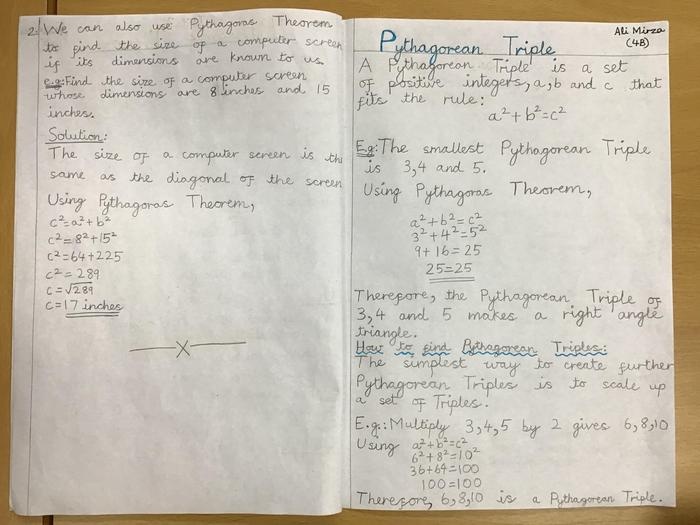 2. We can also use Pythagoras Theorem
to find the size of a computer screen
if its dimensions are known to us.
e.g: Find the size of a computer screen
whose dimensions are 8 inches and 15
inches.
Solution:
The size of a computer screen is the
same as the diagonal of the screen
Using Pythagoras Theorem,
c²=a²+b²
c²=8²+15²
c²=64+225
c²=289
c=√289
c=17 inches
Ali Mirza
(4B)
Pythagorean Triple
A Pythagorean Triple is a set
of positive integers, a, b and c that
fits the rule:
a²+b²=c²
E.g: The smallest Pythagorean Triple
is 3,4 and 5.
Using Pythagoras Theorem,
a²+b²=c²
3²+4²=5²
9+16=25
25=25
Therefore, the Pythagorean Triple of
3,4 and 5 makes a right angle
triangle.
How to find Pythagorean Triples:
The simplest way to create further
Pythagorean Triples is to scale up
a set of Triples.
E.g.: Multiply 3,4,5 by 2 gives 6,8,10
Using a²+b²=c²
6²+8²=10²
36+64=100
100=100
Therefore, 6,8,10 is a Pythagorean Triple.